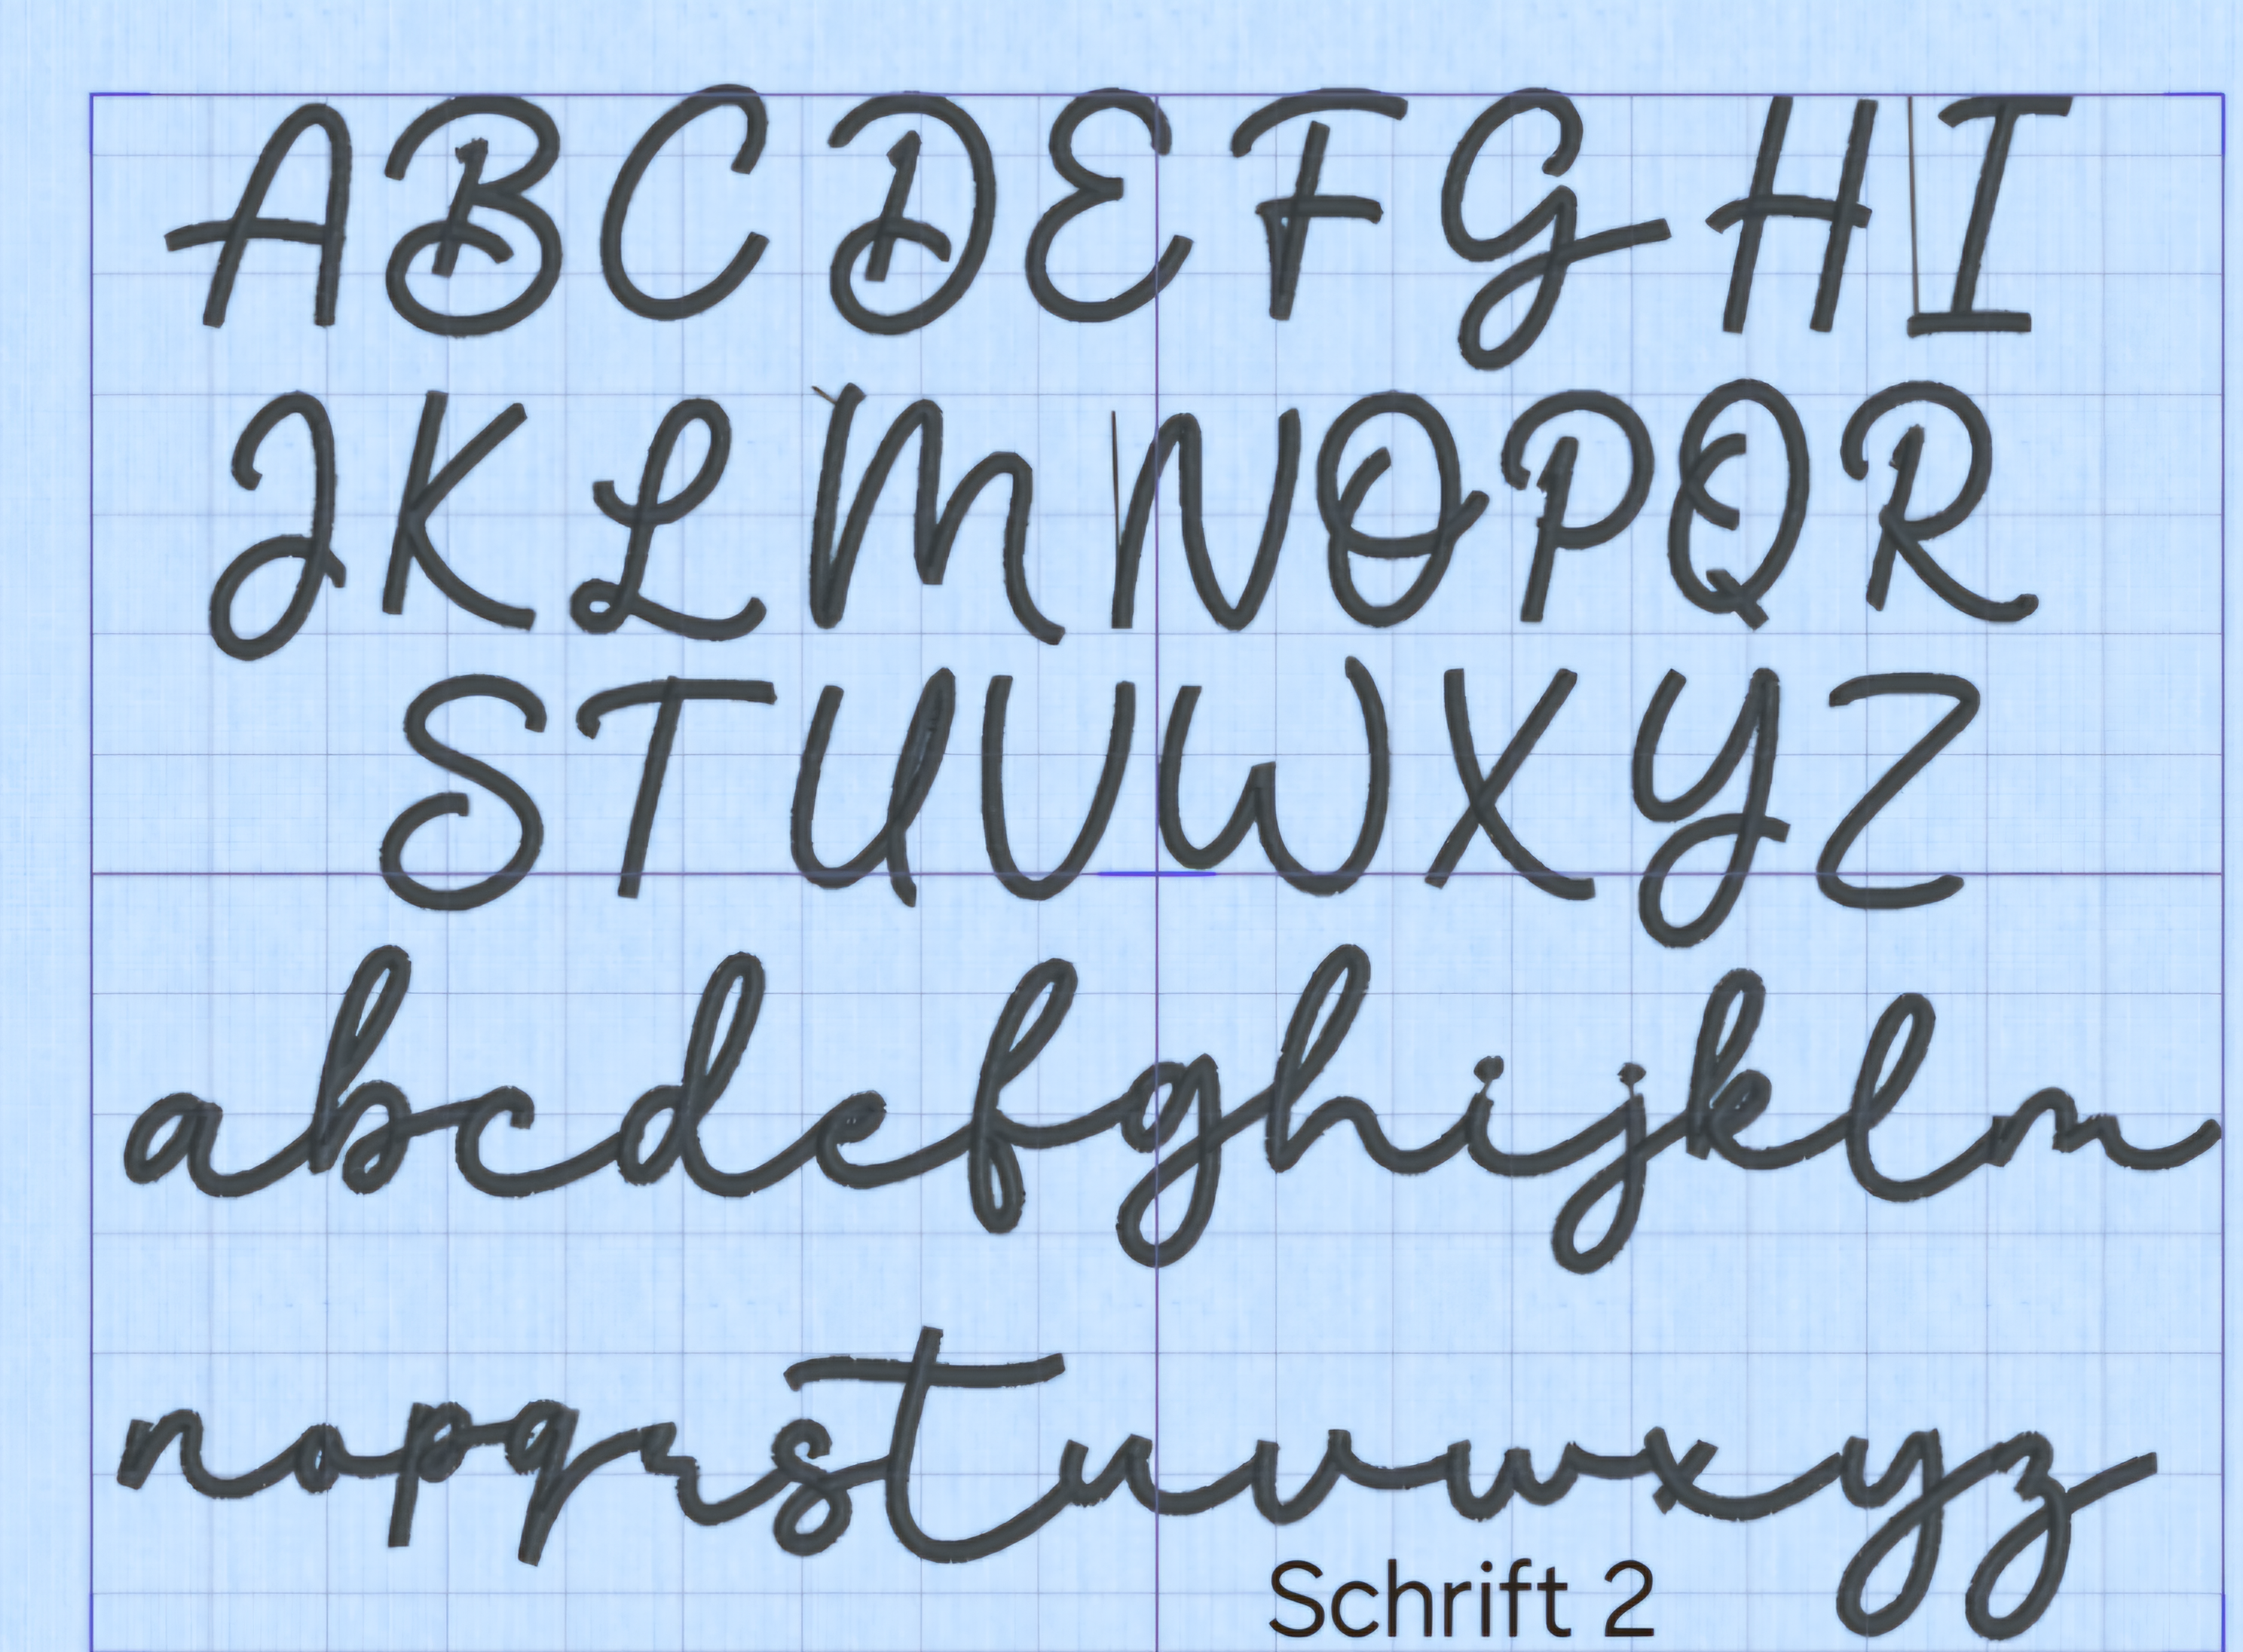 ABCDEFGHI
JKLMNOPQR
STUVWXYZ
abcdefghijklm
nopqrstuvwxyz
Schrift 2